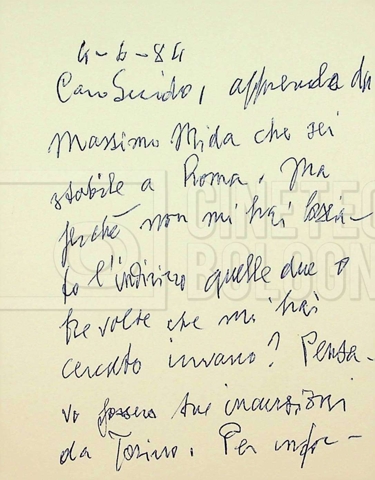 4-6-84
Caro Guido, apprendo da
Massimo Mida che sei
stabile a Roma. Ma
perché non mi hai lascia-
to l'indirizzo quelle due o
tre volte che mi hai
cercato invano? Pensa-
vo fossero tue incursioni
da Torino. Per infor-
CINETECA
BOLOGNA